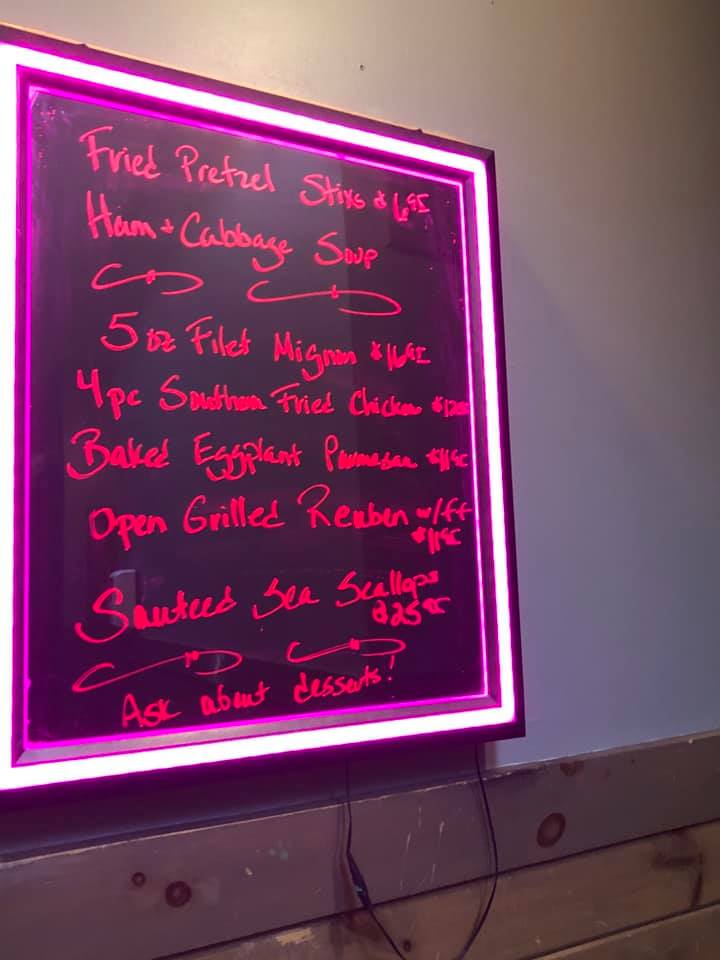 Fried Pretzel Stixs $6.95
Ham + Cabbage Soup
5 oz Filet Mignon $16.95
4pc Southern Fried Chicken
Baked Eggplant Parmesan $11.95
Open Grilled Reuben w/ff
$11.95
Sauteed Sea Scallops
$25.95
Ask about desserts!